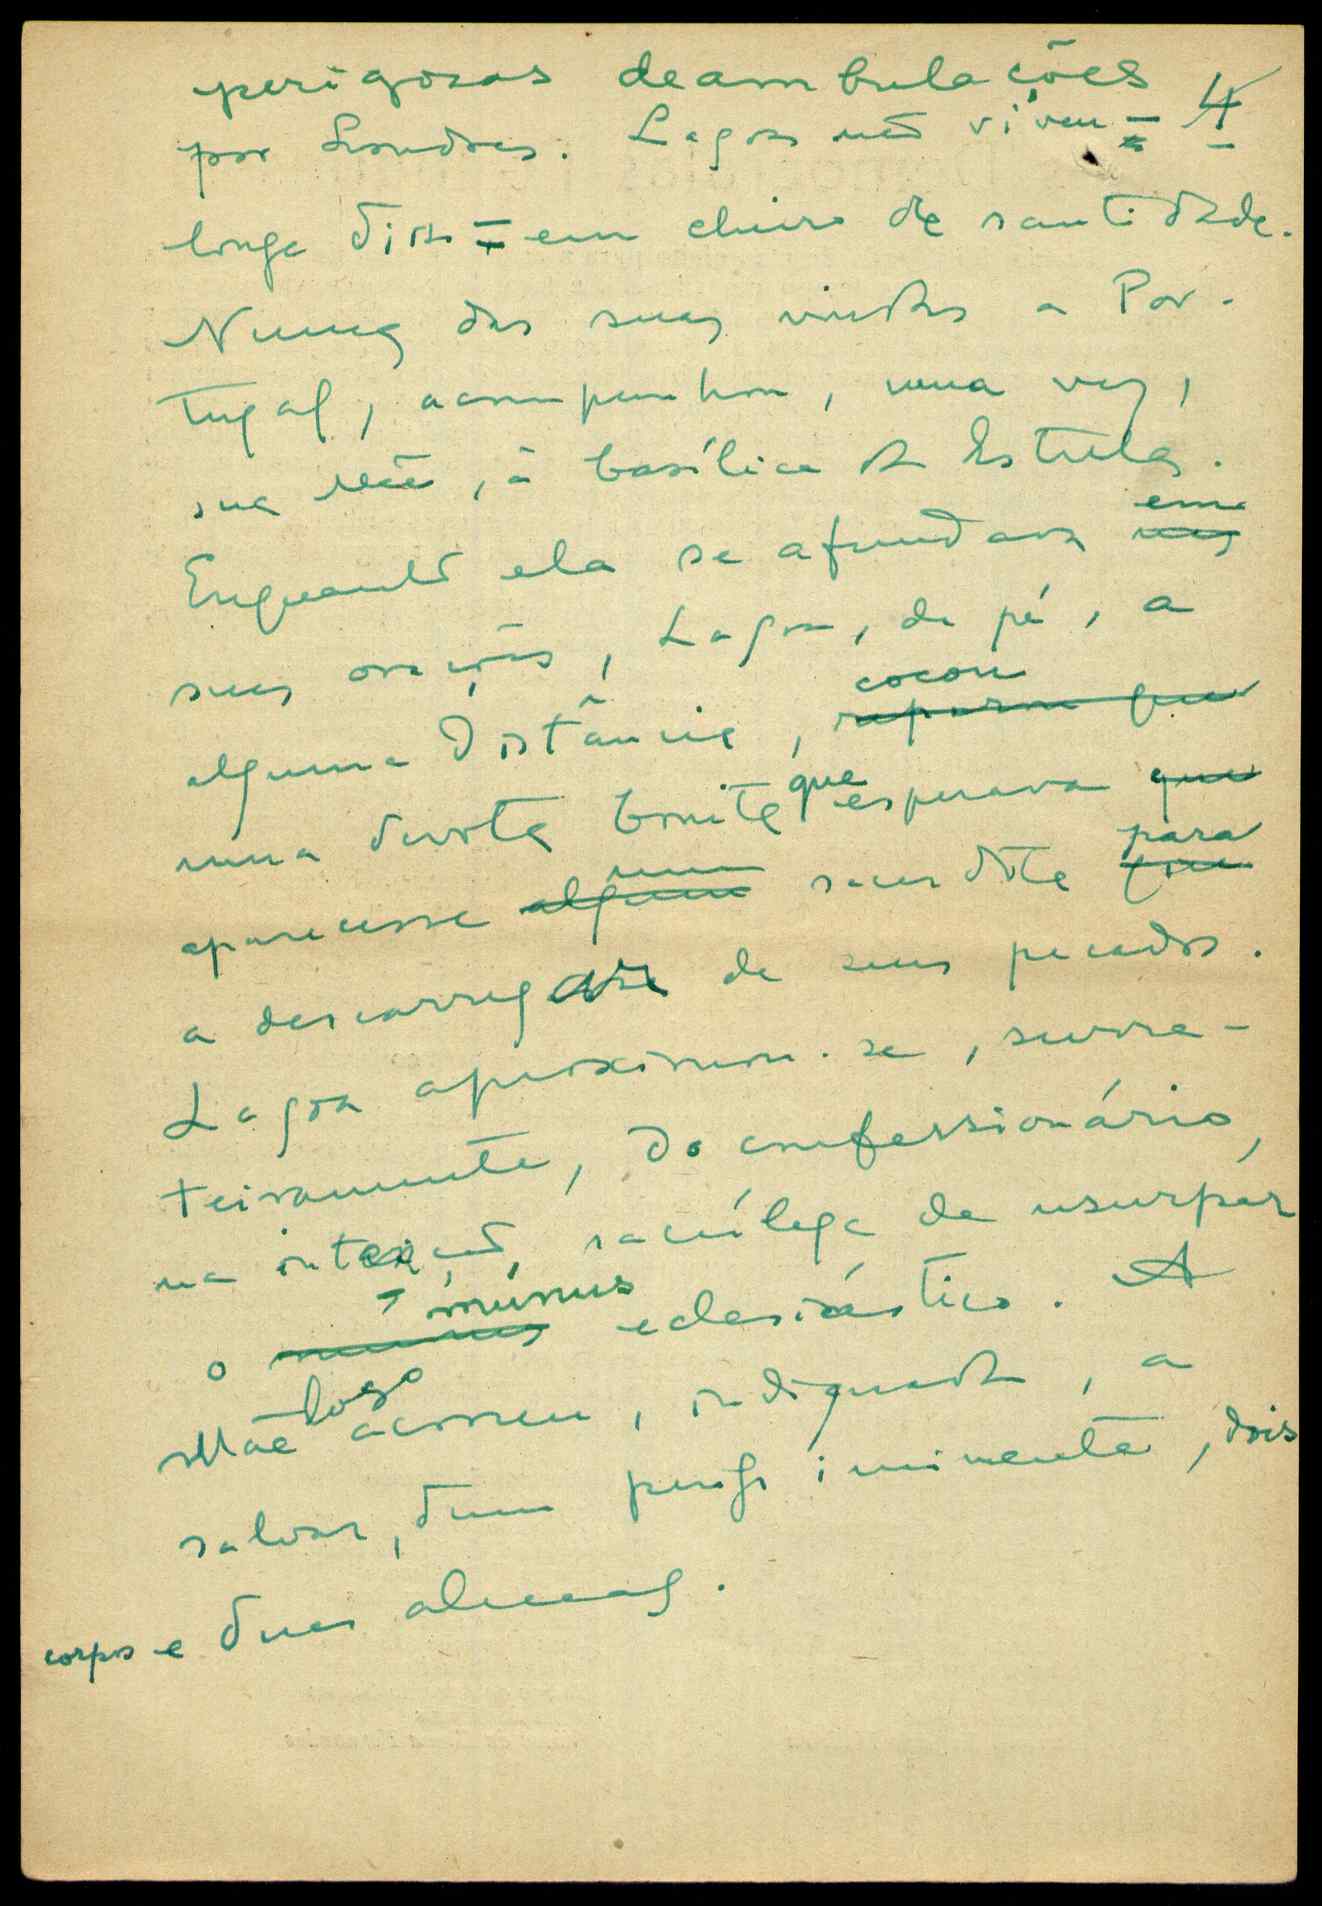 perigosas deambulações
4
por Londres. Lagoa não viveu –
longe disso – em cheiro de santidade.
Numa das suas vindas a Por-
tugal, acompanhou, uma vez,
sua mãe, à basílica da Estrela.
em
Enquanto ela se afundava nas
suas orações, Lagoa, de pé, a
cocou
alguma distância, reparou que
que
uma devota bonita esperava que
um para
aparecesse algum sacerdote que
a descarregar de seus pecados.
Lagoa aproximou-se, sorra-
teiramente, do confessionário,
na intenção, sacrílega de usurpar
múnus
o eclesiástico. A
logo
Mãe acorreu, indignada, a
salvar, dum perigo iminente, dois
corpos e duas almas.